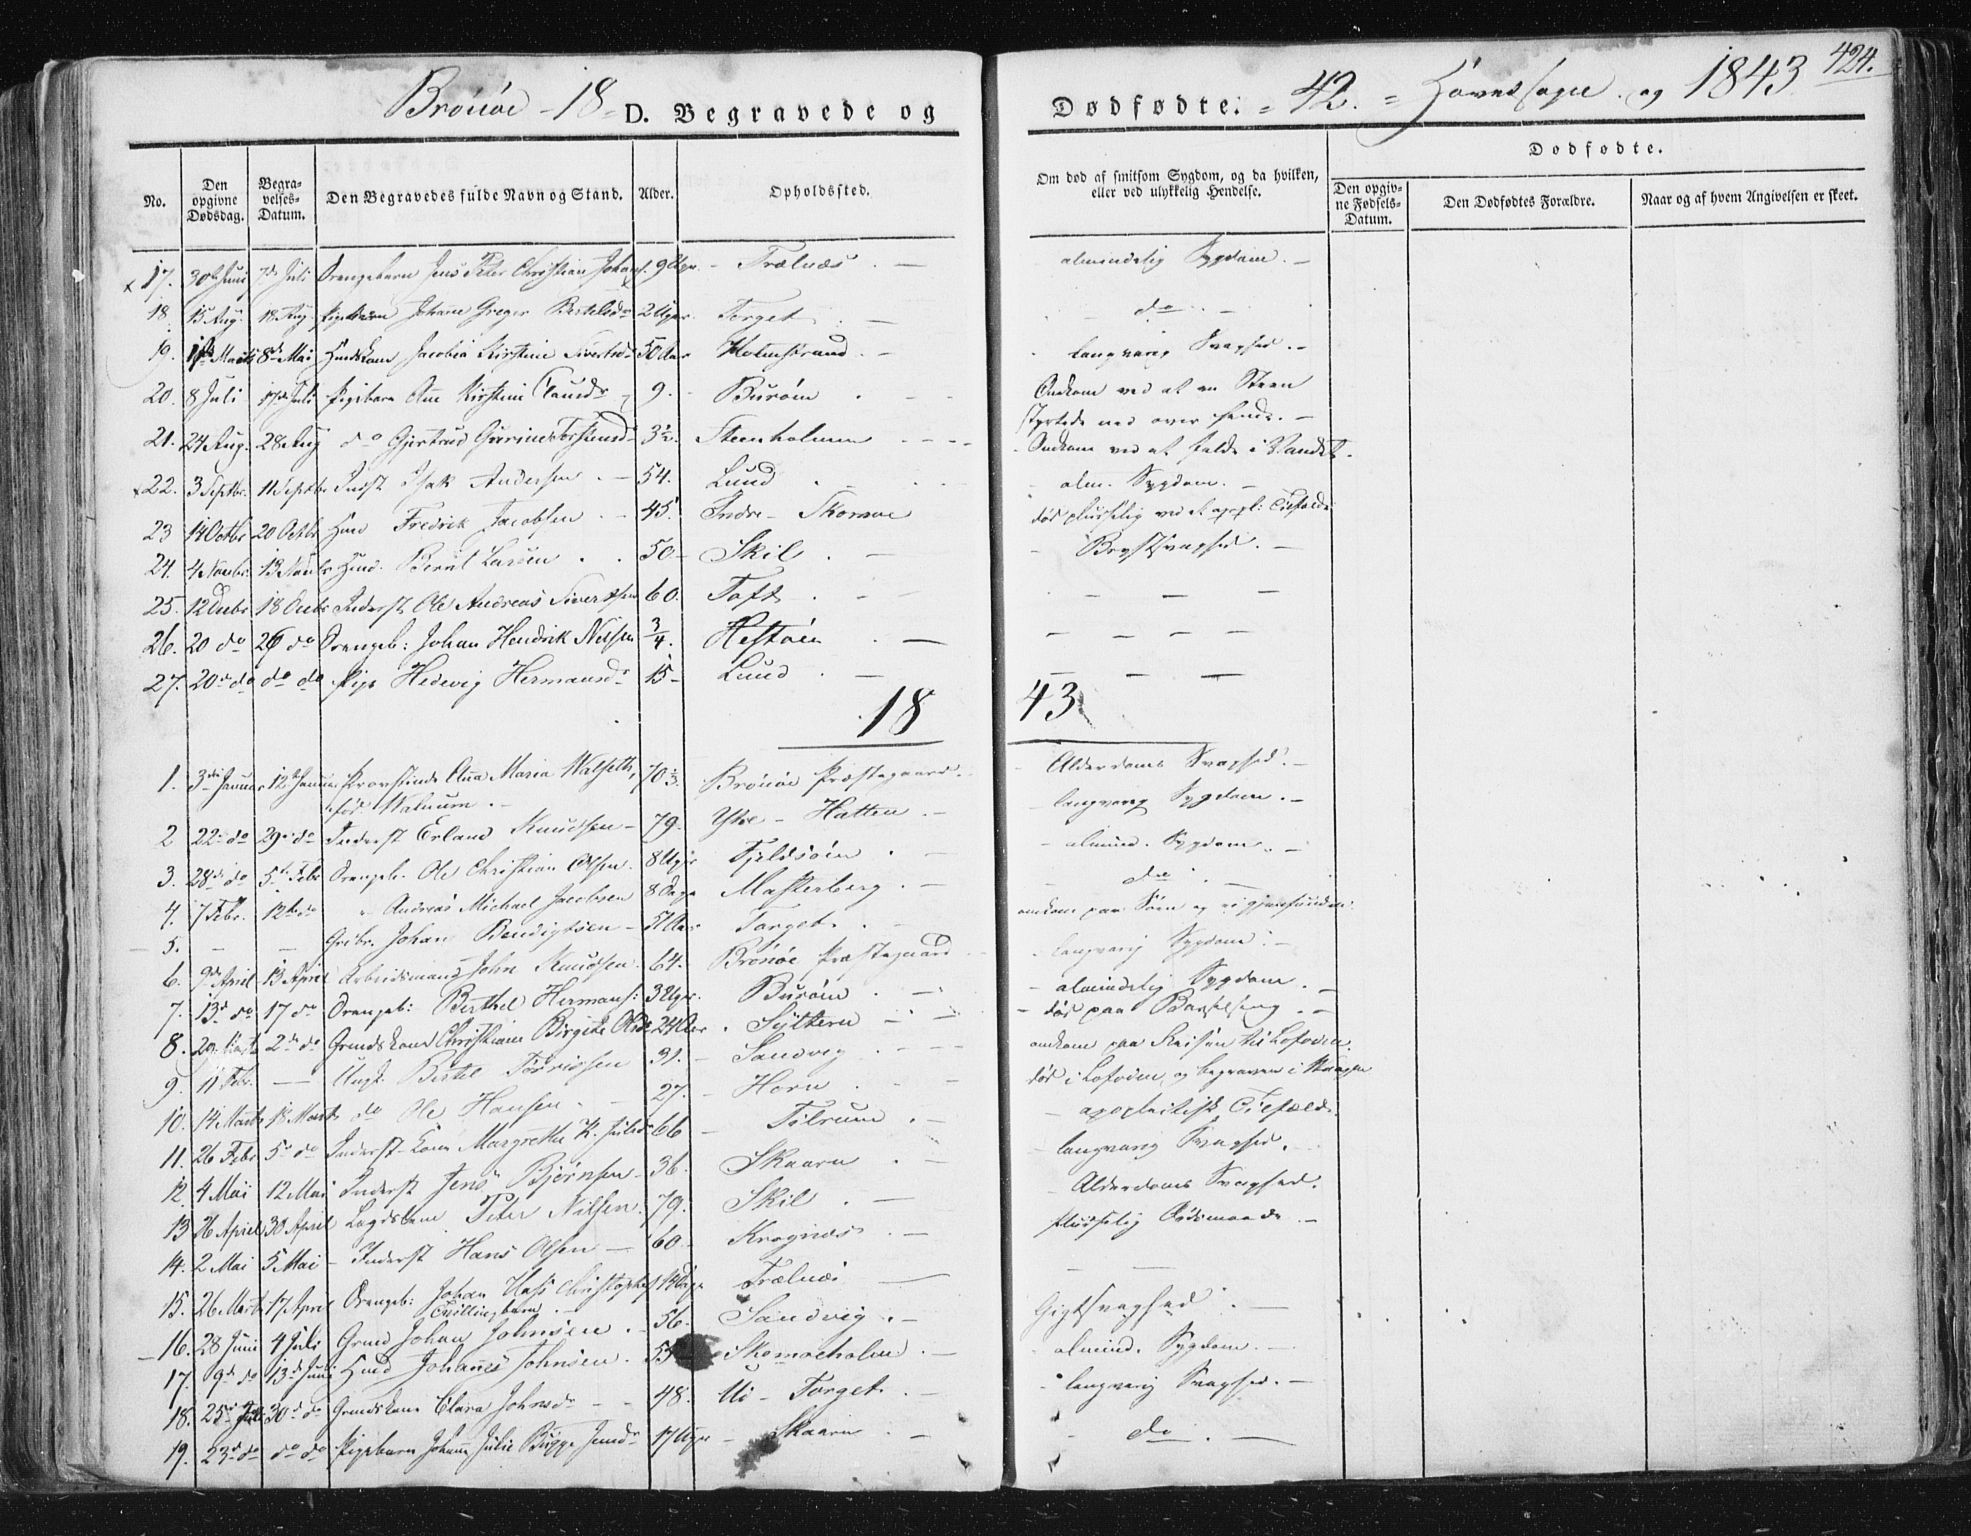 Brönöe - 18 - D. Begravede og Dødfødte. - 42. = Hovedsogn og 1843 424.
No.
Den opgivne Dødsdag.
Begravelses-Datum.
Den Begravedes fulde Navn og Stand.
Alder.
Opholdssted.
Om død af smitsom Sygdom, og da hvilken, eller ved ulykkelig Hendelse.
Dødfødte.
Den opgivne Fødsels-Datum.
Den Dødfødtes Forældre.
Naar og af hvem Angivelsen er skeet.
17. 30te Juni 7de Juli Drengebarn Jens Peter Christian Johans. 9 Uger - Trælnæs - almindelig Sygdom -
18. 15 Aug. 18 Aug. Pigebarn Johane Greger Bertelsdr 2 Uger Torget - do -
19. Marts 8de Mai Huuskone Jacobia Kirstine Sivertsdr 50 Aar Holmstrand - langvarig Svaghed -
20. 8 Juli 17de Juli Pigebarn Ane Kirstine 9. Buröen Omkom ved at en Steen
styrtede ned over hende. -
21. 24 Aug. 28 Aug do Gjertrud 3½. Steenholmen Omkom ved at falde i Vandet.
22. 3 Septbr. 11 Septbr Indst Isak Andersen - 54. Lund - alm. Sygdom. -
23 14 Octbr 20 Octbr Huu Fredrik Jacobsen - 45. Indre - Skomoe død pludselig ved et apopl: Tilfælde
24. 4 Novbr. 13 Novbr Huus. Bernt Larsen 50 - Skil - Brystsvaghed. -
25. 12 Decbr 18 Decbr Inderst Ole Andreas Sivertsen 60. Toft - - -
26. 20 do 26 do Drengeb: Johan Hendrik Nilsen ¾. Hestöen - - - -
27. 20de do do do Pige Hedevig Hermansdr 15 - Lund - - - -
18 43
1. 3de Januar 12te Januar Provstinde Ana Maria Walseth, 70 Brönöe Præstegaard. - Alderdoms Svaghed. -
fød -
2 22de do 29de do Inderst Erland Knudsen - 79. Ytre - Hatten - langvarig Sygdom. -
3. 28de do 5te Febr Drengeb. Ole Christian Olsen. 8 Uger Fjeldsöien - almind. Sygdom -
4. 7 Febr. 12te do " Andreas Michael Jacobsen 8 Dage Maskerberg. - do -
5. - - Grbr. Johan Bendigtsen - 51 Aar Torget. omkom paa Söen og ei gjenfunden.
6. 9de April 13 April Arbeidsmand John Knudsen. 64. Brönöe Præstegaard langvarig Sygdom. -
7. 13de do 17 do Drengeb: Berthel Hermans: 3 Uger. Buröen - almindelig Sygdom. -
8. 29 Marts 2de do Gruuskone Christiane Birgitte Olsdr 24 Aar. Sÿltern - død paa Barselseng. -
9. 11 Febr. - Ungk. Bertel Torrissen 31. - Sandvig omkom paa Reisen til Lofoden.
10. 14 Marts 18 Marts do Ole Hansen 27. - Horn død i Lofoden og begraven i Vaagen
11. 26 Febr. 5te do Inderst-Kone Margrethe K. 66 - Tilrum - apoplectisk Tilfælde.
12. 4 Mai 12 Mai Inderst Jens Bjørnsen - 36. Skaarn - langvarig Svaghed.
13 26 April 30 April Lægdslem Peter Nilsen. 79. Skil - Alderdoms Svaghed.
14. 2 Mai 5 Mai - Inderst Hans Olsen - 60. Krognæs - pludselig Dödsmaade -
15. 26 Marts 17 April Drengeb: Johan Christophers 14 Dage Trælnæs - -
Tvillingbarn. -
16. 28 Juni 4 Juli Gruud Johan Johnsen. 56. Sandvig. - Gigtsvaghed -
17. 9de do 13de Juni Huud Johanes Johnsen. 55 Skomoeholm - almind. Sygdom. -
18. 25de Juli 30de do Gruudskone Clara Johnsdr 48. Ui - Torget - langvarig Svaghed. -
19. 23de do do do Pigebarn Johana Julie Bugge Jensdr 17 Uger - Skaarn - do -